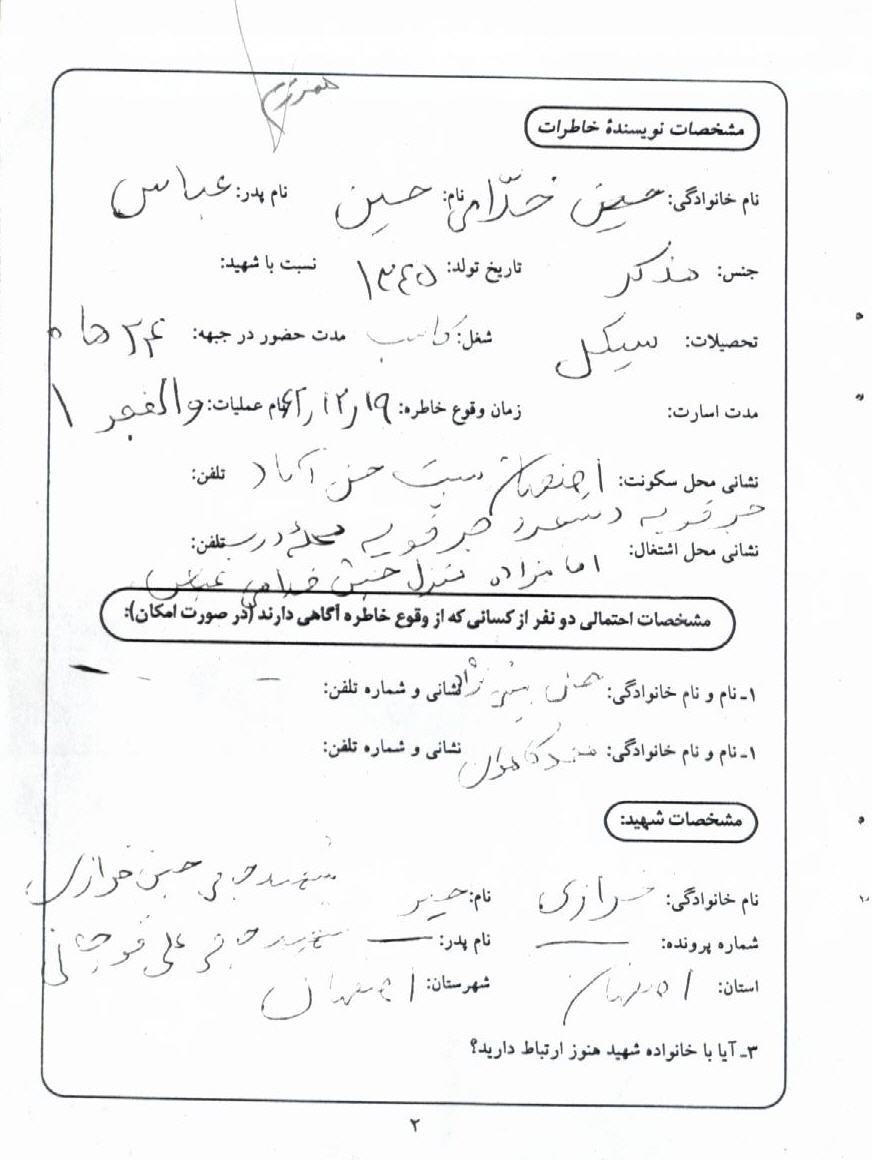 همرزم
مشخصات نویسندهٔ خاطرات
نام خانوادگی: خدّامی نام: حسین نام پدر: عباس
جنس: مذکر تاریخ تولد: ۱۳۴۵ نسبت با شهید:
تحصیلات: سیکل شغل: کاسب مدت حضور در جبهه: ۲۴ ماه
مدت اسارت: زمان وقوع خاطره: ۱۹ ر ۱۲ ر ۶۲ نام عملیات: والفجر ۱
نشانی محل سکونت: اصفهان پست حسن آباد تلفن:
جرقویه جرقویه محلهٔ درب
نشانی محل اشتغال: امامزاده منزل خدامی عباس تلفن:
مشخصات احتمالی دو نفر از کسانی که از وقوع خاطره آگاهی دارند (در صورت امکان):
۱ـ نام و نام خانوادگی: نشانی و شماره تلفن:
۱ـ نام و نام خانوادگی: نشانی و شماره تلفن:
مشخصات شهید:
شهید حاجی حسین خرازی
نام خانوادگی: خرازی نام: حسین
شماره پرونده: — نام پدر: — شهید حاجی علی قوچانی
استان: اصفهان شهرستان: اصفهان
۳ـ آیا با خانواده شهید هنوز ارتباط دارید؟
۲